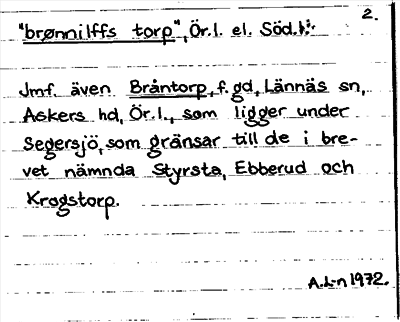 2.
"brønnilffs torp", Ör.l. el. Söd.l:
Jmf. även Bråntorp, f.gd, Lännäs sn,
Askers hd, Ör.l., som ligger under
Segersjö, som gränsar till de i bre-
vet nämnda Styrsta, Ebberud och
Krogstorp.
A.L-n 1972.